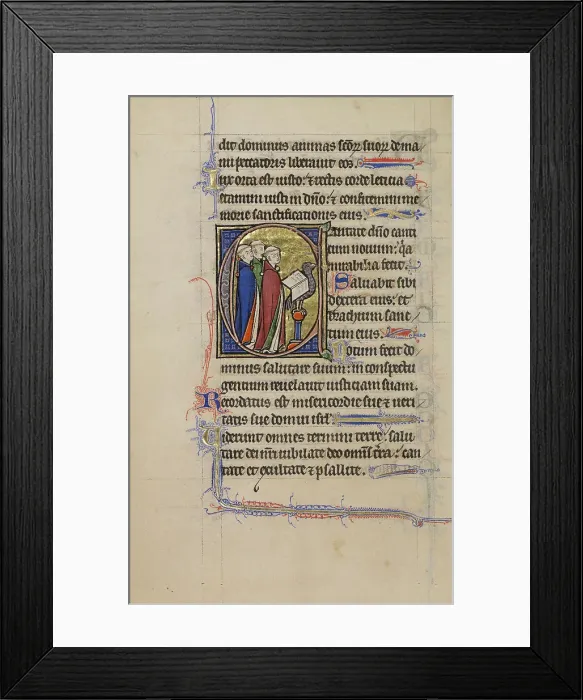 dit dominus animas scōꝝ suoꝝ de ma
nu peccatoris liberauit eos.
Lux orta est iusto: ⁊ rectis corde leticia
Letamini iusti in dn̄o: ⁊ confitemini me
morie sanctificationis eius.
Cantate dn̄o canti
cum nouum: q̄a
mirabilia fecit.
Saluabit sibi
dextera eius: et
brachium sanc
tum eius.
Notum fecit do
minus salutare suum: in conspectu
gentium reuelauit iusticiam suam.
Recordatus est misericordie sue ⁊ ueri
tatis sue domui isrl̄.
Uiderunt omnes termini terre: salu
tare dei nr̄i iubilate deo omīs t̄ra: can
tate et exultate ⁊ psallite.